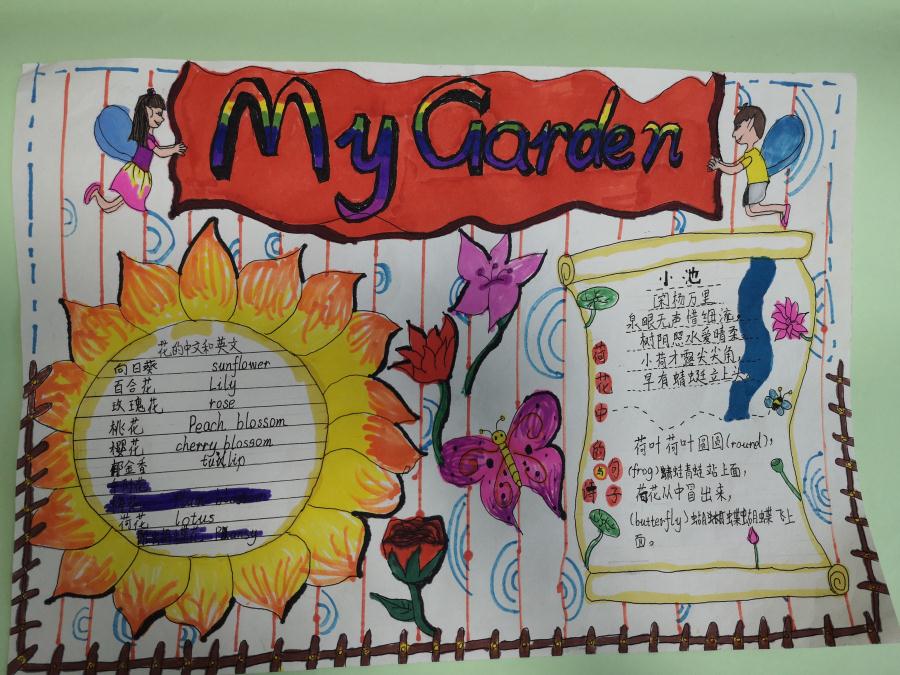 My Garden
花的中文和英文
向日葵 sunflower
百合花 Lily
玫瑰花 rose
桃花 Peach blossom
樱花 cherry blossom
郁金香 tulip
荷花 lotus
小池
[宋]杨万里
泉眼无声惜细流，
树阴照水爱晴柔。
小荷才露尖尖角，
早有蜻蜓立上头。
荷花中的
诗与句子
荷叶荷叶圆圆(round)，
(frog)青蛙站上面，
荷花从中冒出来，
(butterfly)蝴蝶蝴蝶飞上
面。